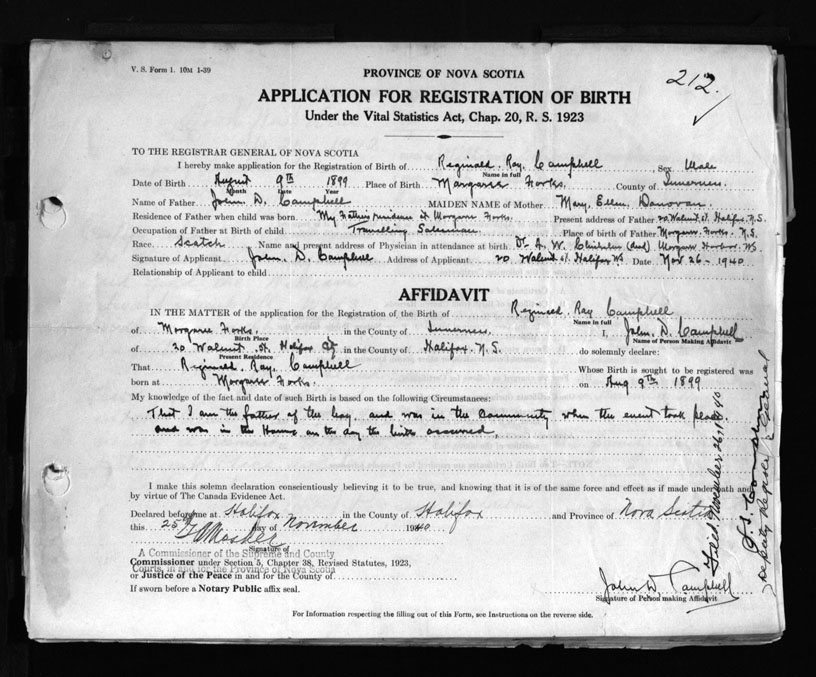 V. S. Form 1. 10M 1-39
212.
PROVINCE OF NOVA SCOTIA
APPLICATION FOR REGISTRATION OF BIRTH
Under the Vital Statistics Act, Chap. 20, R. S. 1923
TO THE REGISTRAR GENERAL OF NOVA SCOTIA
I hereby make application for the Registration of Birth of Reginald. Ray. Campbell Sex Male
Name in full
Date of Birth August 9th 1899 Place of Birth Margaree Forks. County of Inverness.
Month Date Year
Name of Father John. D. Campbell MAIDEN NAME of Mother Mary. Ellen. Donovan.
Residence of Father when child was born. My Fathers residence at Margaree Forks. Present address of Father 20 Walnut st. Halifax N.S.
Occupation of Father at Birth of child Travelling Salesman. Place of birth of Father Margaree. Forks. N.S.
Race. Scotch. Name and present address of Physician in attendance at birth Dr A. W. Margaree Harbor. NS
Signature of Applicant John. D. Campbell Address of Applicant 20. Walnut st. Halifax NS Date Nov 26-1940
Relationship of Applicant to child
AFFIDAVIT
IN THE MATTER of the application for the Registration of the Birth of Reginald. Ray Campbell
Name in full
of Margaree Forks. in the County of Inverness I, John. D. Campbell
Birth Place Name of Person Making Affidavit
of 20 Walnut. St. Halifax in the County of Halifax. N.S. do solemnly declare:
Present Residence
That Reginald. Ray. Campbell Whose Birth is sought to be registered was
born at Margaree Forks. on Aug 9th 1899
My knowledge of the fact and date of such Birth is based on the following Circumstances:
That I am the father of the boy and was in the Community when the event took place
and was in the House on the day the birth occurred.
I make this solemn declaration conscientiously believing it to be true, and knowing that it is of the same force and effect as if made under oath and
by virtue of The Canada Evidence Act.
Declared before me at Halifax in the County of Halifax and Province of Nova Scotia
this 25 day of November 1940
Signature of
A Commissioner of the Supreme and County
Commissioner under Section 5, Chapter 38, Revised Statutes, 1923,
Courts, in and for the Province of Nova Scotia
or Justice of the Peace in and for the County of
If sworn before a Notary Public affix seal.
John D Campbell
Signature of Person making Affidavit
For Information respecting the filling out of this Form, see Instructions on the reverse side.
Filed November 26, 1940
Deputy Registrar General